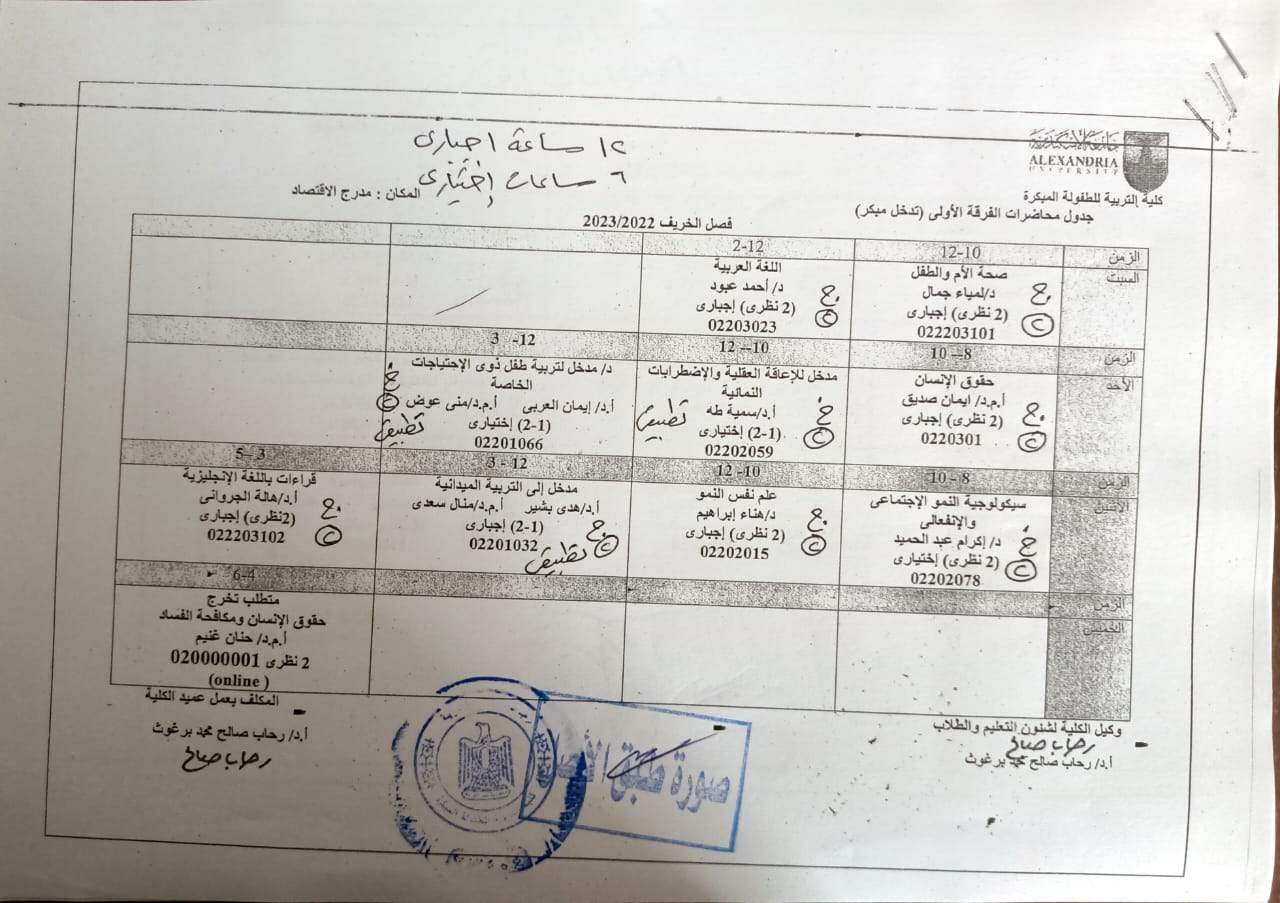 ١٢ ساعة اجبارى
٦ ساعات إختيارى
جامعة الإسكندرية
ALEXANDRIA
UNIVERSITY
كلية التربية للطفولة المبكرة
المكان : مدرج الاقتصاد
جدول محاضرات الفرقة الأولى (تدخل مبكر)
فصل الخريف 2023/2022
الزمن
12-10
2-12
السبت
صحة الأم والطفل
د/لمياء جمال
(2 نظرى) إجبارى
022203101
ج
C
اللغة العربية
د/ أحمد عبود
(2 نظرى) إجبارى
02203023
ج
C
الزمن
10 –8
12 –10
3 -12
الأحد
حقوق الإنسان
أ.م.د/ ايمان صديق
(2 نظرى) إجبارى
0220301
ج
C
مدخل للإعاقة العقلية والإضطرابات
النمائية
أ.د/سمية طه
(2-1) إختيارى
02202059
خ
C
تطبيق
د/ مدخل لتربية طفل ذوى الإحتياجات
الخاصة
أ.د/ إيمان العربى أ.م.د/منى عوض
(2-1) إختيارى
02201066
خ
C
تطبيق
الزمن
10 - 8
12 -10
3 - 12
5 – 3
الاثنين
سيكولوجية النمو الإجتماعى
والإنفعالى
د/ إكرام عبد الحميد
(2 نظرى) إختيارى
02202078
خ
C
علم نفس النمو
د/هناء إبراهيم
(2 نظرى) إجبارى
02202015
ج
C
مدخل إلى التربية الميدانية
أ.د/هدى بشير أ.م.د/منال سعدى
(2-1) إجبارى
02201032
ج
C
تطبيق
قراءات باللغة الإنجليزية
أ.د/هالة الجروانى
(2نظرى) إجبارى
022203102
ج
C
الزمن
6-4
الخميس
متطلب تخرج
حقوق الإنسان ومكافحة الفساد
أ.م.د/ حنان غنيم
2 نظرى 020000001
(online )
وكيل الكلية لشئون التعليم والطلاب
رحاب صالح
أ.د/ رحاب صالح محمد برغوث
المكلف بعمل عميد الكلية
أ.د/ رحاب صالح محمد برغوث
رحاب صالح
صورة طبق الأصل